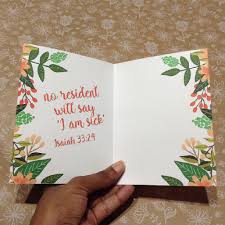 no resident
will say
'I am sick'
Isaiah 33:24